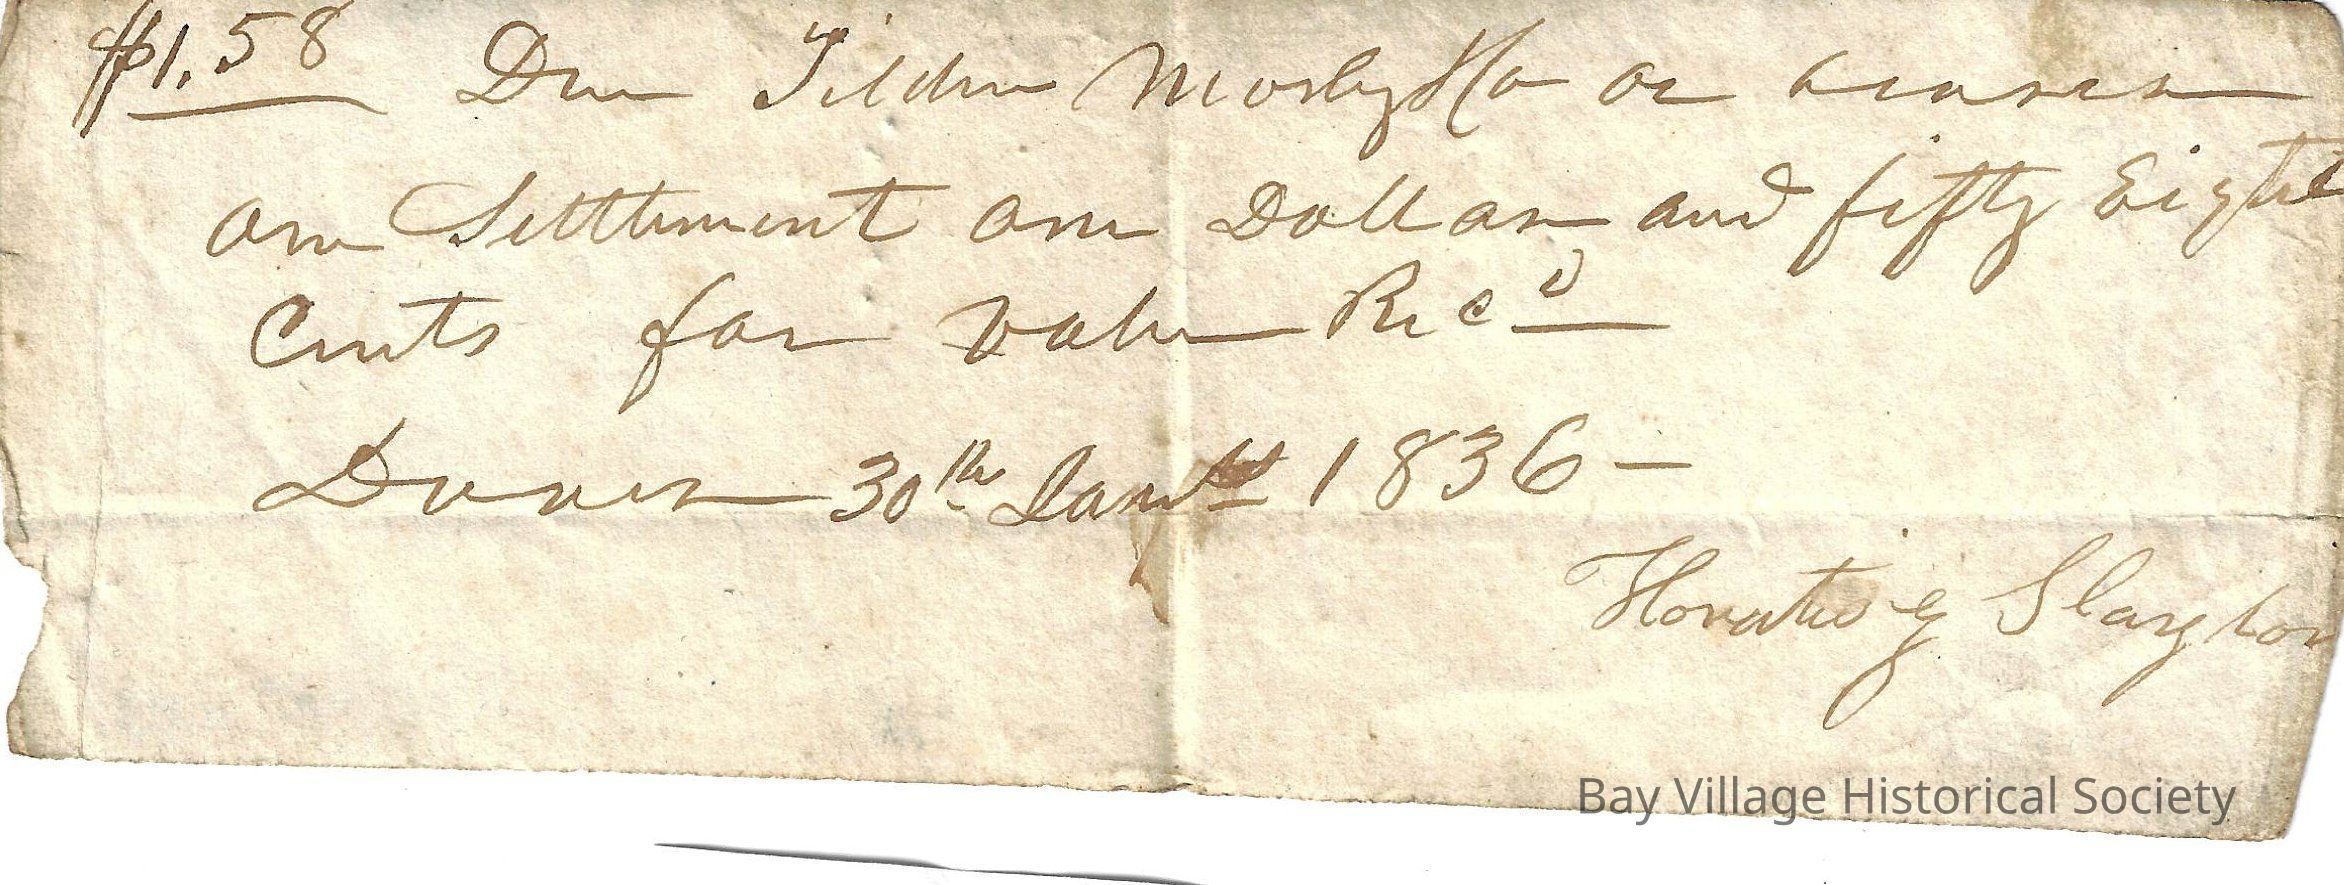 $1.58 Due Tilden Morley & Co or bearer
on Settlement one Dollar and fifty Eight
Cents for value Rec^d
Dover 30th Jany 1836 –
Horatio g Slaughter
Bay Village Historical Society